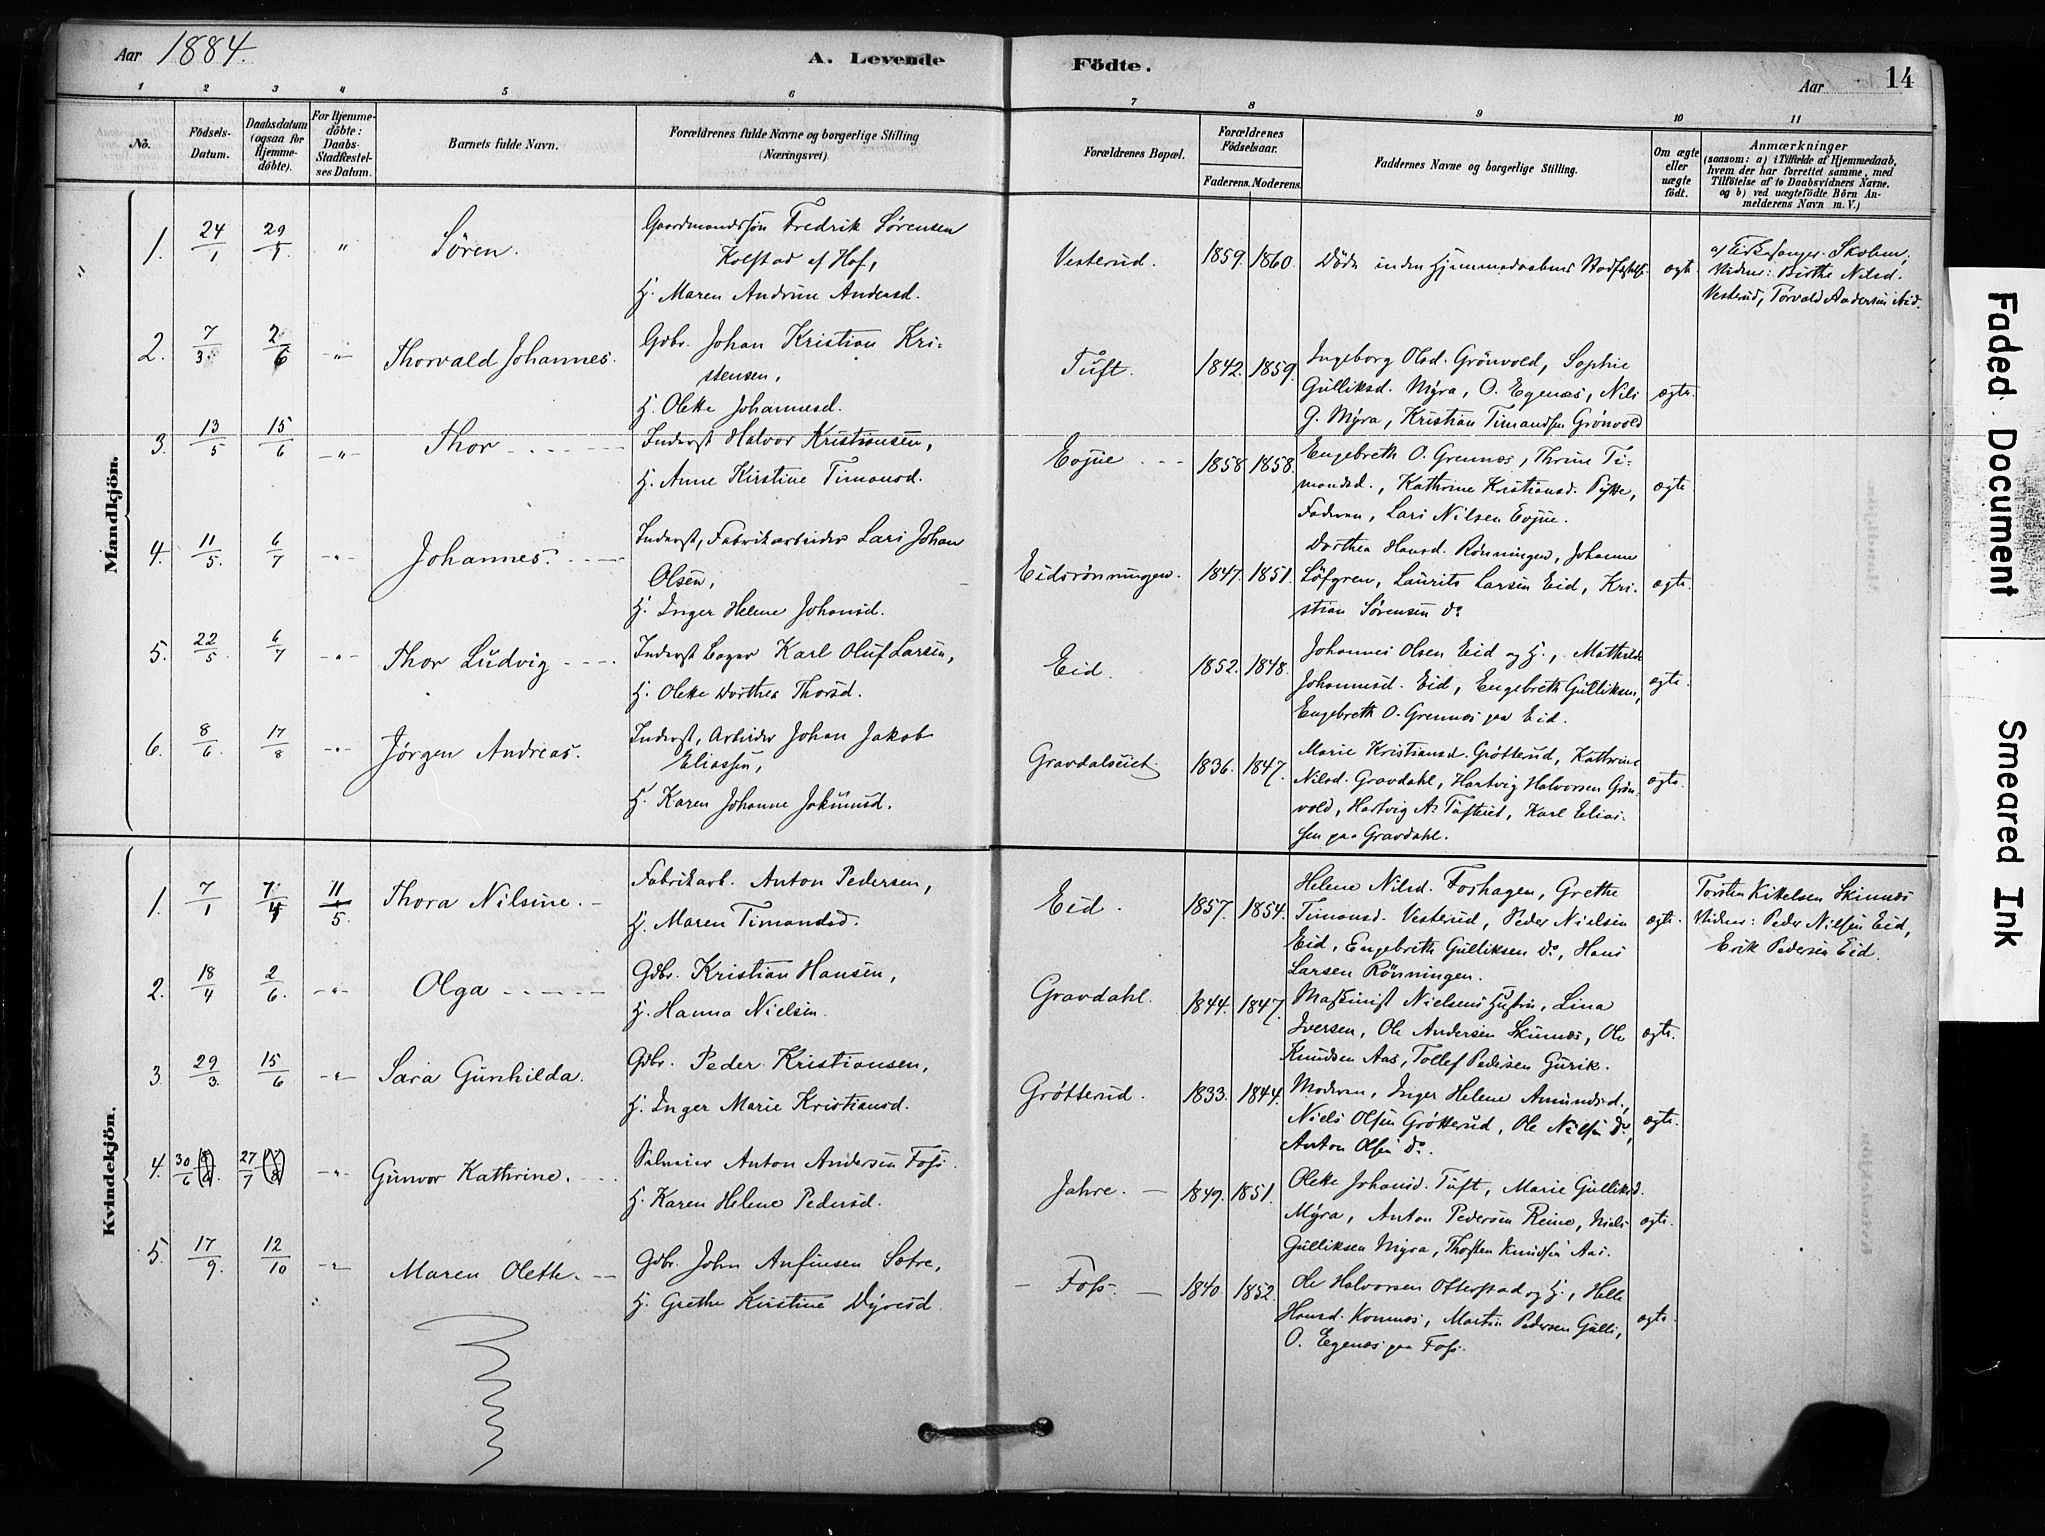 Aar 1884.
A. Levende Födte.
Aar
14
1 2 3 4 5 6 7 8 9 10 11
No.
Födsels-Datum.
Daabsdatum (ogsaa for Hjemme-döbte).
For Hjemme-döbte: Daabs-Stadfæstel-ses Datum.
Barnets fulde Navn.
Forældrenes fulde Navne og borgerlige Stilling
(Næringsvei)
Forældrenes Bopæl.
Forældrenes Födselsaar.
Faderens. Moderens.
Faddernes Navne og borgerlige Stilling.
Om ægte eller uægte födt.
Anmærkninger
(saasom: a) i Tilfælde af Hjemmedaab,
hvem der har forrettet samme, med
Tilföielse af to Daabsvidners Navne,
og b) ved uægtefödte Börn An-
melderens Navn m. V.)
Mandkjön.
1. 24/1 29/1 " Sören.
Gaardmandssön Fredrik Sörensen
Kolstad af Hof,
H. Maren Andrine Andersd.
Vesterud. 1859. 1860.
Döde inden Hjemmedaabens Stadfæstelse. ægte
Vidner: Birthe Nilsd.
Vesterud, Torvald Andersen Eid.
2. 7/3 2/6 -"- Thorvald Johannes.
Gdbr. Johan Kristian Kri-
stensen,
H. Olette Johannesd.
Tuft. 1842. 1859.
Ingeborg Olsd. Grönvold, Sophie
Gulliksd. Myra, O. Egenæs, Nils
G. Myra, Kristian Timandsen Grönvold
ægte.
3. 13/5 15/6 -"- Thor
Inderst Halvor Kristiansen,
H. Anne Kirstine Timansd.
Evjue 1858. 1858.
Engebreth O. Grennes, Thrine Ti-
mandsd., Kathrine Kristiansd. Pytte,
Faderen, Lars Nilsen Evjue.
ægte.
4. 11/5. 6/7 -"- Johannes.
Inderst, Fabrikarbeider Lars Johan
Olsen,
H. Inger Helene Johansd.
Eidsrönningen. 1847. 1851.
Dorthea Hansd. Rönningen, Johanne
Löfgren, Laurits Larsen Eid, Kri-
stian Sörensen do
ægte.
5. 22/5 6/7 -"- Thor Ludvig
Inderst Bager Karl Oluf Larsen,
H. Olette Dorthea Thorsd.
Eid. 1852. 1848.
Johannes Olsen Eid og H., Mathilde
Johannesd. Eid, Engebreth Gulliksen,
Engebreth O. Grennes paa Eid.
ægte.
6. 8/6. 17/8 -"- Jörgen Andreas.
Inderst, Arbeider Johan Jakob
Eliassen,
H. Karen Johanne Jokumsd.
Gravdalseiet 1836. 1847.
Marie Kristiansd. Grötterud, Kathrine
Nilsd. Gravdahl, Hartvig Halvorsen Grön-
vold, Hartvig A. Tufteiet, Karl Elias-
sen paa Gravdahl.
ægte.
Kvindekjön.
1. 7/1 7/4 11/5. Thora Nilsine.
Fabrikarb. Anton Pedersen,
H. Maren Timandsd.
Eid. 1857. 1854.
Helene Nilsd. Foshagen, Grethe
Timansd. Vesterud, Peder Nielsen
Eid, Engebreth Gulliksen do, Hans
Larsen Rönningen.
ægte.
Torsten Kittelsen Skinnes
Vidner: Peder Nilsen Eid,
Erik Pedersen Eid.
2. 18/4 2/6. -"- Olga
Gdbr. Kristian Hansen,
H. Hanna Nielsen.
Gravdahl. 1844. 1847.
Maskinist Nielsens Hustru, Lina
Iversen, Ole Andersen Skinnes, Ole
Knudsen Aas, Tollef Pedersen Gurik.
ægte.
3 29/3. 15/6 -"- Sara Gunhilda.
Gdbr. Peder Kristiansen,
H. Inger Marie Kristiansd.
Grötterud. 1833. 1844.
Moderen, Inger Helene Amundsd.,
Niels Olsen Grötterud, Ole Nilsen do,
Anton Olsen do.
ægte.
4. 30/6 (8/6) 27/7 (17/8) -"- Gunvor Kathrine.
Anton Andersen Foss.
H. Karen Helene Pedersd.
Jahre. 1849. 1851.
Olette Johansd. Tuft, Marie Gulliksd.
Myra, Anton Pedersen Reine, Niels
Gulliksen Myra, Thorsten Knudsen Aas.
ægte.
5. 17/9. 12/10 -"- Maren Olette.
Gdbr. John Anfinsen Sotre,
H. Grethe Kirstine Dyresd.
Foss. 1840 1852.
Ole Halvorsen Otterstad og H., Helle
Hansd. Komnes, Martin Pedersen Gulli,
O. Egenæs paa Foss.
ægte.
Faded Document Smeared Ink